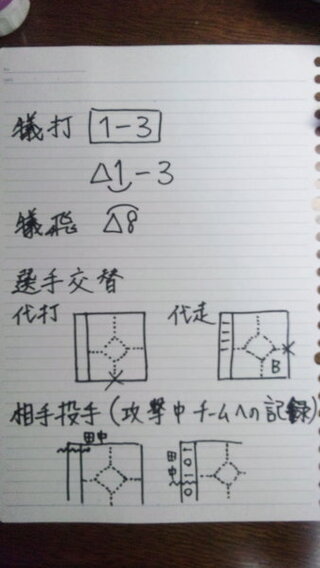 犠打 1-3
△1-3
犠飛 △8
選手交替
代打 代走
B
相手投手(攻撃中チームへの記録)
田中 田中